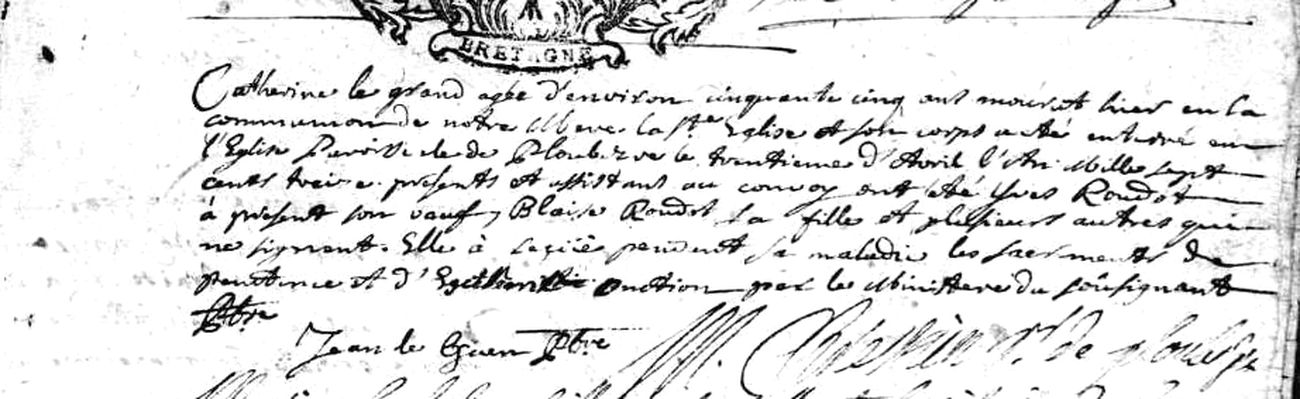 BRETAGNE
Catherine le grand agée d'environ cinquante cinq ans mourut hier en la
communion de notre Mere la Ste Eglise et son corps a eté enterré en
l'Eglise Paroissiale de Ploubezre le trentieme d'Avril l'An Mille sept
cents treize. presents et assistans au convoy ont eté Yves Roudot
à present son veuf, Blaise Roudot sa fille et plusieurs autres qui
ne signent. Elle à reçüe pendent sa maladie les sacrments de
penitence et d' onction par le Ministere du soûsignant
Ptre
Jean le Guen Ptre
de